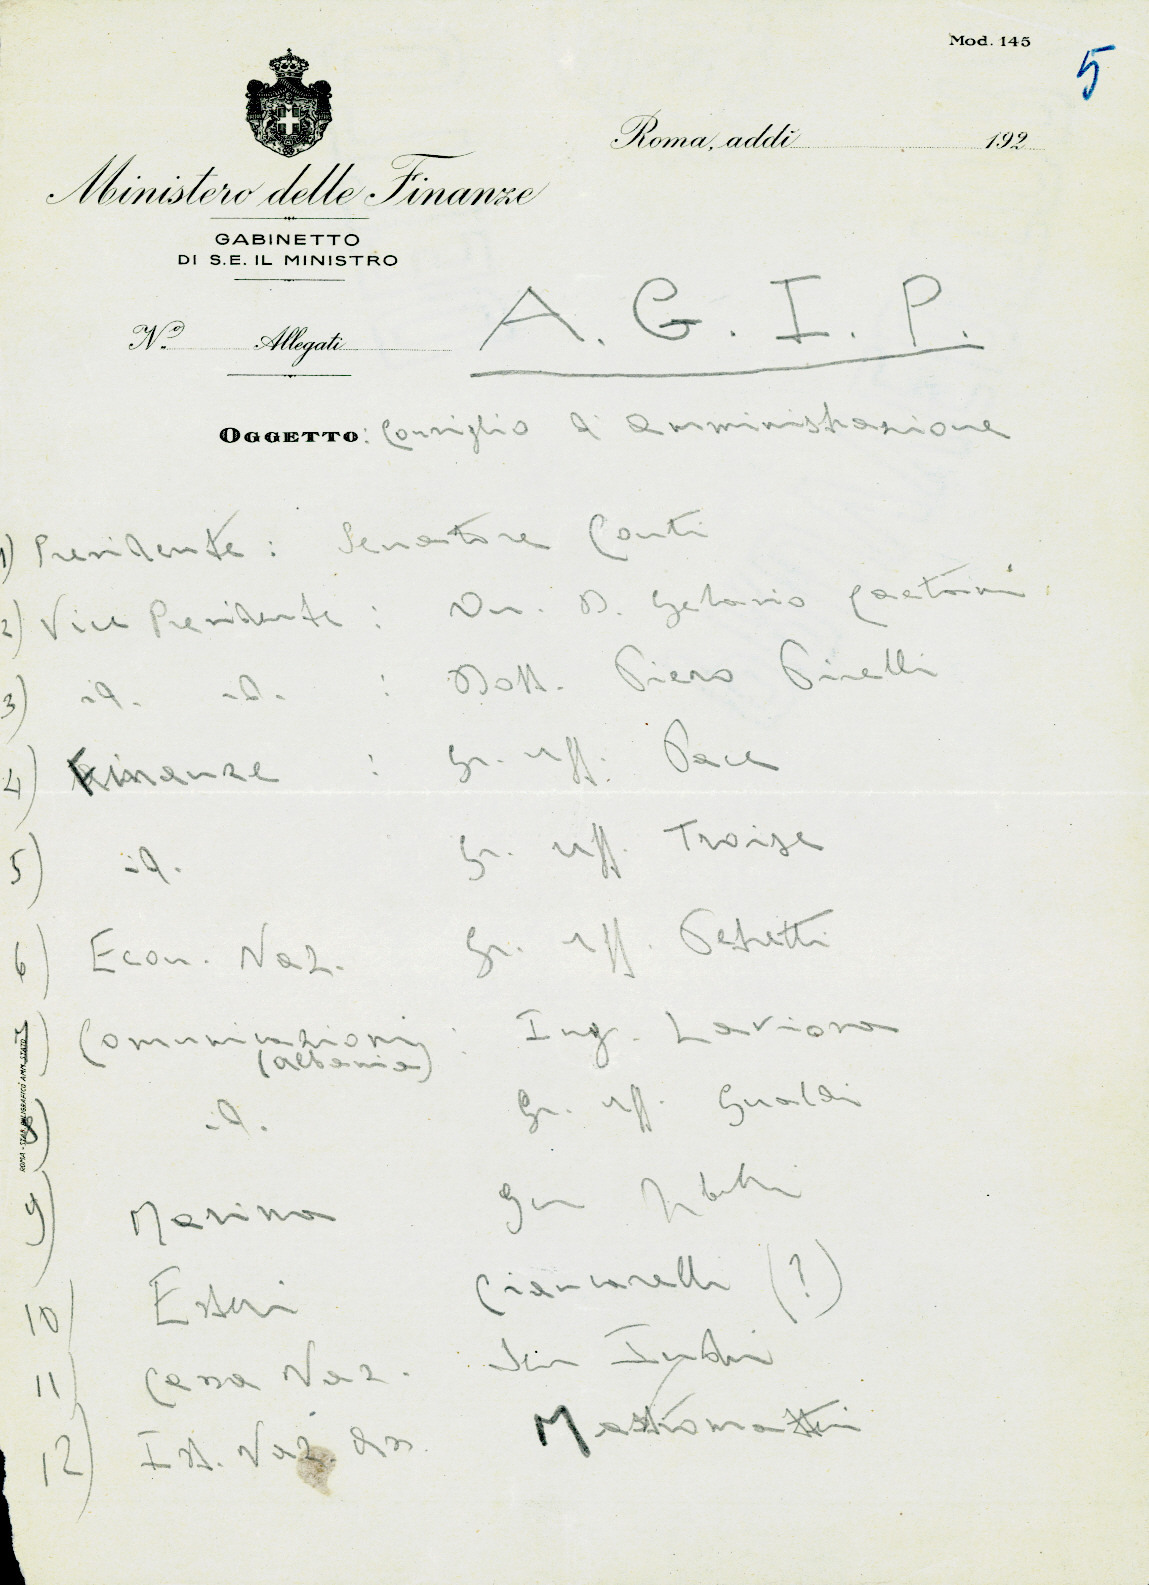 Mod. 145
5
Roma, addì 192
Ministero delle Finanze
GABINETTO
DI S.E. IL MINISTRO
A. G. I. P.
N.º Allegati
OGGETTO: Consiglio d'amministrazione
1) Presidente: Senatore Conti
2) Vice Presidente: On. D. Gelasio Caetani
3) id. id. : Dott. Piero Pirelli
4) Finanze : Gr. uff. Pace
5) id. Gr. uff. Troise
6) Econ. Naz. Gr. uff. Petretti
7) Comunicazioni : Ing. Laviosa
(Albania)
8) id. Gr. uff. Gualdi
9) Marina Gen
10) Esteri Ciancarelli (?)
11) Cassa Naz. Sen Indri
12) Ist. Naz. Ass. Mastromattei